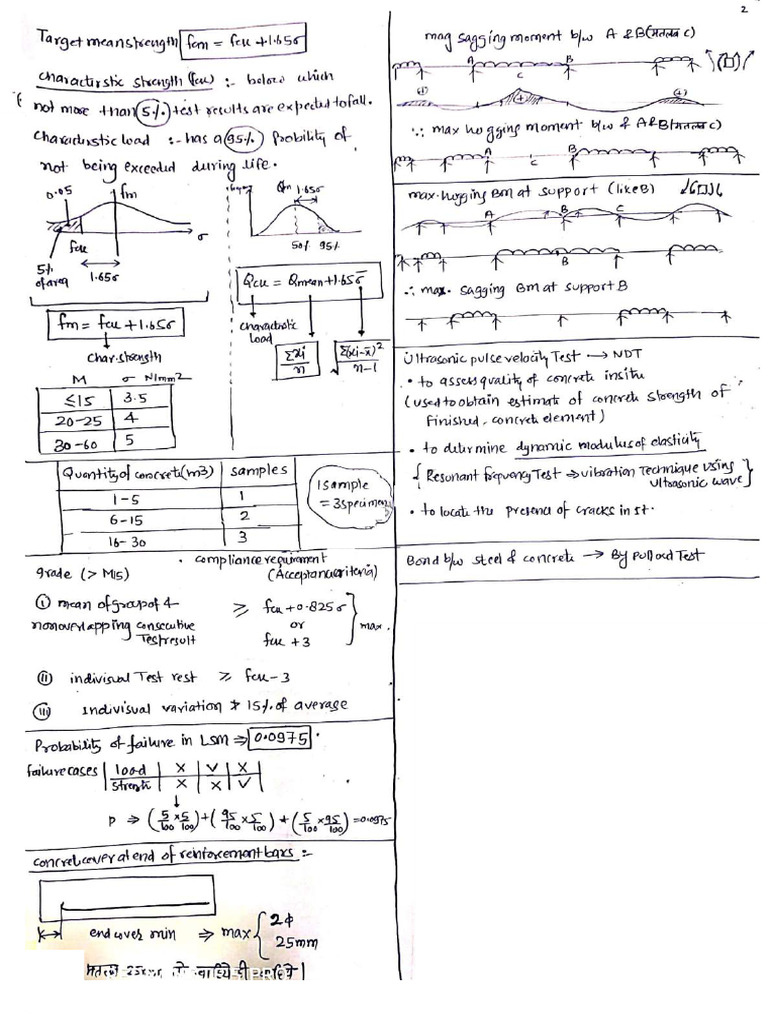 2
Target meanstrength fcm = fcu + 1.65σ
characterstic strength (fcu) :- below which
not more than 5% test results are expected to fall.
characterstic load :- has a 95% Probility of
not being exceeded during life.
0.05
fm
fcu
σ
5% of area
1.65σ
Qm 1.65σ
50% 95%
fm = fcu + 1.65σ
char. strength
Qcu = Qmean + 1.65σ
charactristic load
Σxi/n
√Σ(xi-x̄)²/n-1
M σ N/mm2
≤15 3.5
20-25 4
30-60 5
Quantity of concrete (m3) samples
1-5 1
6-15 2
16-30 3
1 sample
= 3 specimen
compliance requirement
grade (> M15) (Acceptance criteria)
(i) mean of group of 4 ≥ fcu + 0.825σ
nonoverlapping consecutive or max.
Test result fcu + 3
(ii) indivisual Test rest ≥ fcu - 3
(iii) Indivisual variation ≯ 15% of average
Probability of failure in LSM ⇒ 0.0975
failure cases load x v x
strength x x v
P ⇒ (5/100 × 5/100) + (95/100 × 5/100) + (5/100 × 95/100) = 0.0975
concrete cover at end of reinforcement bars :-
end cover min ⇒ max { 2ϕ
25mm
मतलब 25mm तो चाहिये ही
mag sagging moment b/w A & B (मतलब C)
A B
C
(+) (+) (+)
∴ max hogging moment b/w A & B (मतलब C)
A C B
max. hogging BM at support (like B)
A B C
B
∴ max. sagging BM at support B
Ultrasonic pulse velocity Test → NDT
• to assess quality of concrete insitu
(used to obtain estimate of concrete strength of
finished concrete element)
• to determine dynamic modulus of elasticity
{ Resonant frequency Test ⇒ vibration Technique using
ultrasonic wave }
• to locate the presence of cracks in st.
Bond b/w steel & concrete → By pull out Test